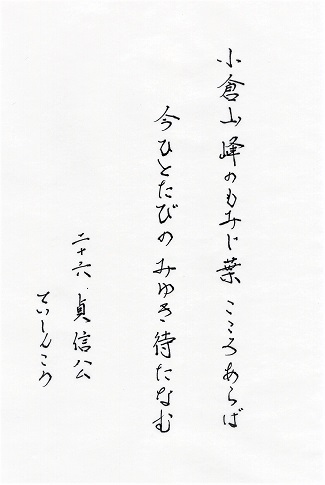 小倉山 峰のもみじ葉 こころあらば
今ひとたびの みゆき待たなむ
二十六 . 貞信公
ていしんこう